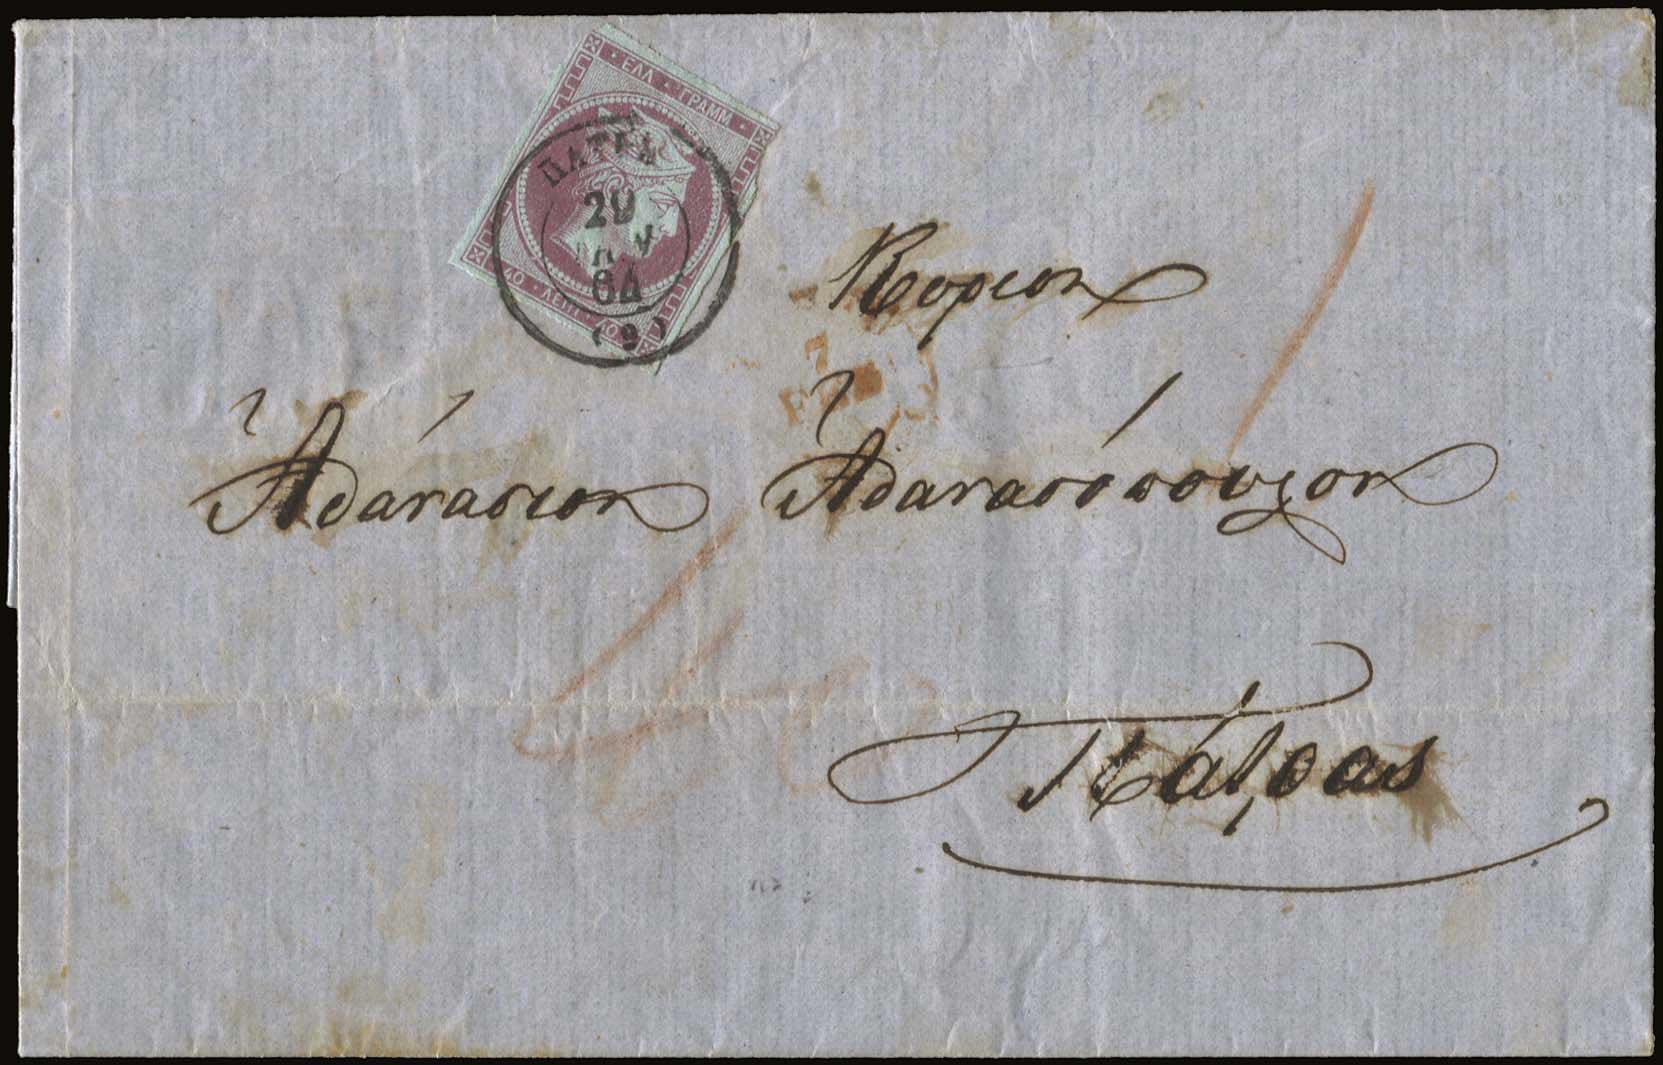 ΕΛΛ · ΓΡΑΜΜ
40 · ΛΕΠΤ · 40
20
64
(9)
Κύριον
Ἀθανάσιον Ἀθανασόπουλον
Πάτρας